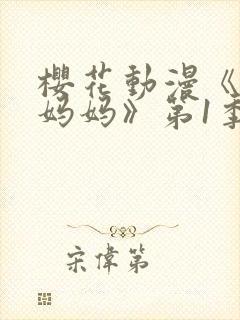 櫻花動漫《
妈妈》第1季
宋偉第